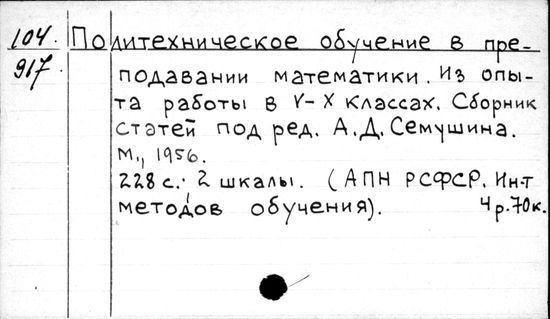 104. Политехническое обучение в пре-
917. подавании математики. Из опы-
та работы в V-X классах. Сборник
статей под ред. А.Д. Семушина.
М., 1956.
228 с.; 2 шкалы. (АПН РСФСР. Ин-т
методов обучения). 4 р. 70 к.